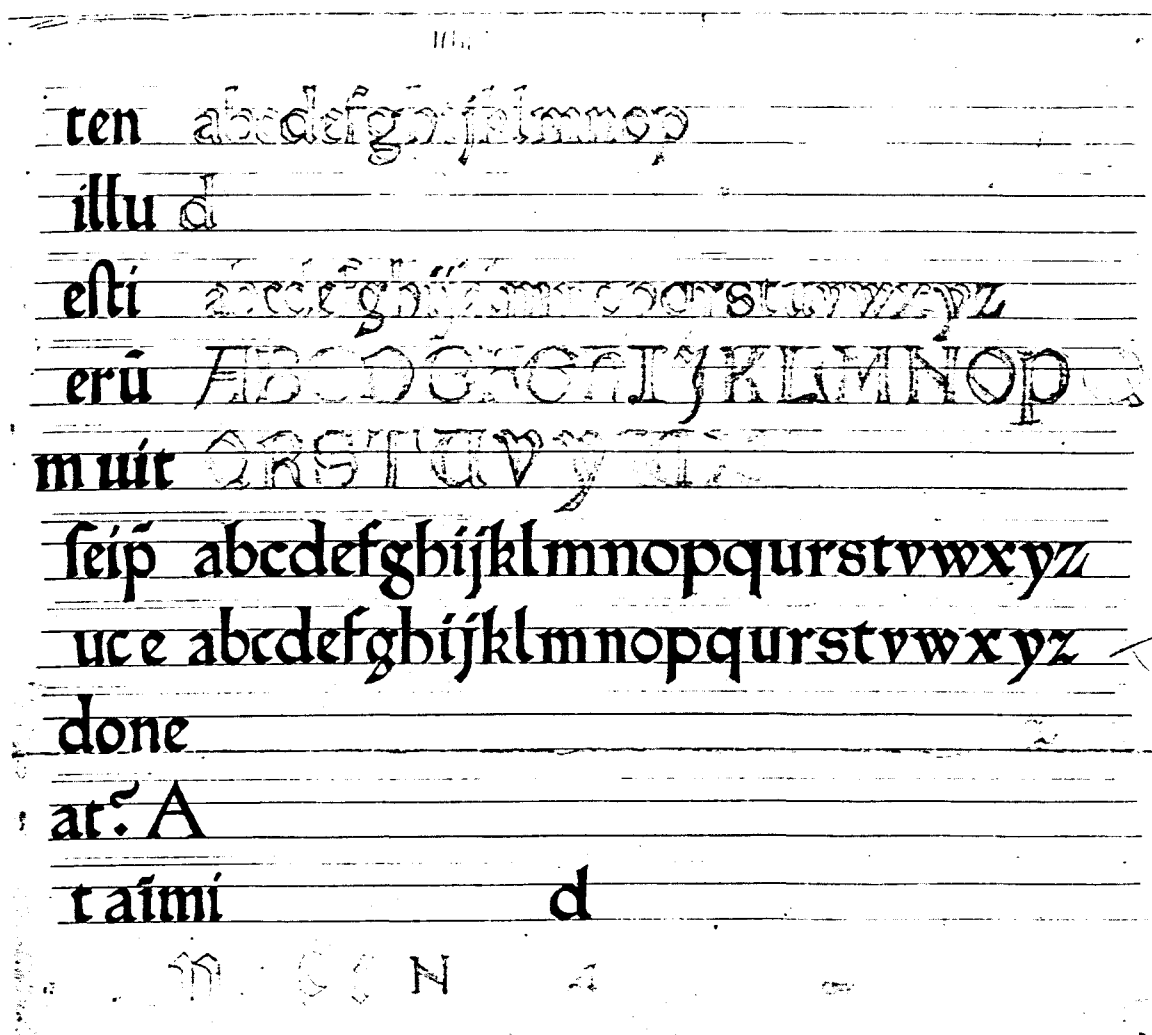 ten abcdefghijklmnop
illu d
eſti abcdefghijklmnopqrstuvwxyz
erū ABCDEFGHIJKLMNOP
m uit QRSTUVY
ſeip̄ abcdefghijklmnopqurstvwxyz
uce abcdefghijklmnopqurstvwxyz
done
at? A
t aīmi d
N